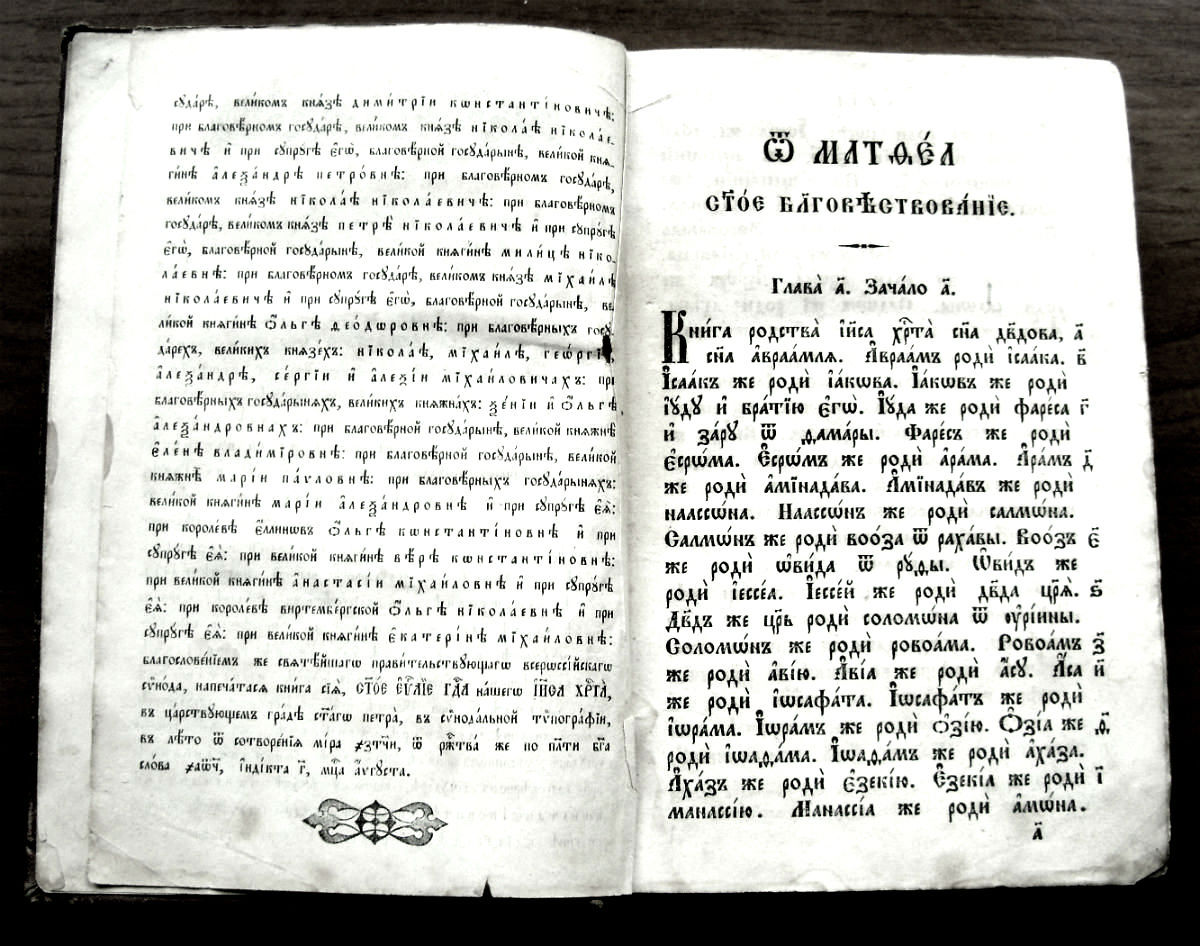 сꙋда́рѣ, вели́комъ кнѧ́зѣ дими́трїи кѡнстанті́новичѣ:
при благовѣ́рномъ госꙋда́рѣ, вели́комъ кнѧ́зѣ нїкола́ѣ нїкола́е-
вичѣ и҆ при сꙋпрꙋ́гѣ є҆гѡ̀, благовѣ́рной госꙋда́рынѣ, вели́кой кнѧ-
ги́нѣ а҆леѯа́ндрѣ петро́внѣ: при благовѣ́рномъ госꙋда́рѣ,
вели́комъ кнѧ́зѣ нїкола́ѣ нїкола́евичѣ: при благовѣ́рномъ
госꙋда́рѣ, вели́комъ кнѧ́зѣ петрѣ̀ нїкола́евичѣ и҆ при сꙋпрꙋ́гѣ
є҆гѡ̀, благовѣ́рной госꙋда́рынѣ, вели́кой кнѧги́нѣ ми́лицѣ нїко-
ла́евнѣ: при благовѣ́рномъ госꙋда́рѣ, вели́комъ кнѧ́зѣ мїхаи́лѣ
нїкола́евичѣ и҆ при сꙋпрꙋ́гѣ є҆гѡ̀, благовѣ́рной госꙋда́рынѣ, ве-
ли́кой кнѧги́нѣ ѻ҆́льгѣ ѳео́дѡровнѣ: при благовѣ́рныхъ госꙋ-
да́рехъ, вели́кихъ кнѧзе́хъ: нїкола́ѣ, мїхаи́лѣ, геѡ́ргїи,
а҆леѯа́ндрѣ, се́ргїи и҆ а҆леѯі́и мїха́иловичахъ: при
благовѣ́рныхъ госꙋда́рынѧхъ, вели́кихъ кнѧжна́хъ: ѯе́нїи и҆ ѻ҆́льгѣ
а҆леѯа́ндровнахъ: при благовѣ́рной госꙋда́рынѣ, вели́кой кнѧжнѣ̀
є҆ле́нѣ влади́мїровнѣ: при благовѣ́рной госꙋда́рынѣ, вели́кой
кнѧжнѣ̀ марі́и па́ѵловнѣ: при благовѣ́рныхъ госꙋда́рынѧхъ:
вели́кой кнѧги́нѣ марі́и а҆леѯа́ндровнѣ и҆ при сꙋпрꙋ́гѣ є҆ѧ̀:
при короле́вѣ є҆́ллинѡвъ ѻ҆́льгѣ кѡнстанті́новнѣ и҆ при
сꙋпрꙋ́гѣ є҆ѧ̀: при вели́кой кнѧги́нѣ вѣ́рѣ кѡнстанті́новнѣ:
при вели́кой кнѧги́нѣ а҆настасі́и мїха́иловнѣ и҆ при сꙋпрꙋ́гѣ
є҆ѧ̀: при короле́вѣ виртембе́ргской ѻ҆́льгѣ нїкола́евнѣ и҆ при
сꙋпрꙋ́гѣ є҆ѧ̀: при вели́кой кнѧги́нѣ є҆катері́нѣ мїха́иловнѣ:
благослове́нїемъ же свѧтѣ́йшагѡ прави́тельствꙋющагѡ всерѡссі́йскагѡ
сѷно́да, напеча́тасѧ кни́га сїѧ̀, ст҃о́е є҆ѵⷢ҇лїе гдⷭ҇а на́шегѡ і҆и҃са хрⷭ҇та̀,
въ ца́рствꙋющемъ гра́дѣ ст҃а́гѡ петра̀, въ сѷнода́льной тѷпогра́фїи,
въ лѣ́то ѿ сотворе́нїѧ мі́ра ҂зтч҃и, ѿ рⷤ҇тва́ же по пло́ти бг҃а
сло́ва ҂аѿч҃, і҆ндї́кта г҃, мцⷭ҇а а҆́ѵгꙋста.
Ѿ матѳе́а
ст҃о́е бл҃говѣствова́нїе.
Глава̀ а҃. Зача́ло а҃.
Кни́га родства̀ і҆и҃са хрⷭ҇та̀ сн҃а дв҃дова, а҃
сн҃а а҆враа́млѧ. А҆враа́мъ родѝ і҆саа́ка. в҃
І҆саа́къ же родѝ і҆а́кѡва. І҆а́кѡвъ же родѝ
і҆ꙋ́дꙋ и҆ бра́тїю є҆гѡ̀. І҆ꙋ́да же родѝ фаре́са г҃
и҆ за́рꙋ ѿ ѳама́ры. Фаре́съ же родѝ
є҆срѡ́ма. Є҆срѡ́мъ же родѝ а҆ра́ма. А҆ра́мъ д҃
же родѝ а҆мїнада́ва. А҆мїнада́въ же родѝ
наассѡ́на. Наассѡ́нъ же родѝ салмѡ́на.
Салмѡ́нъ же родѝ воо́за ѿ раха́вы. Воо́зъ є҃
же родѝ ѡ҆ви́да ѿ рꙋ́ѳы. Ѡ҆ви́дъ же
родѝ і҆ессе́а. І҆ессе́й же родѝ дв҃да цр҃ѧ̀. ѕ҃
Дв҃дъ же цр҃ь родѝ соломѡ́на ѿ ᲂу҆рі́ины.
Соломѡ́нъ же родѝ ровоа́ма. Ровоа́мъ з҃
же родѝ а҆ві́ю. А҆ві́а же родѝ а҆́сꙋ. А҆́са и҃
же родѝ і҆ѡсафа́та. І҆ѡсафа́тъ же родѝ
і҆ѡра́ма. І҆ѡра́мъ же родѝ ѻ҆зі́ю. Ѻ҆зі́а же ѳ҃
родѝ і҆ѡаѳа́ма. І҆ѡаѳа́мъ же родѝ а҆ха́за.
А҆ха́зъ же родѝ є҆зекі́ю. Є҆зекі́а же родѝ і҃
манассі́ю. Манассі́а же родѝ а҆мѡ́на.
а҃